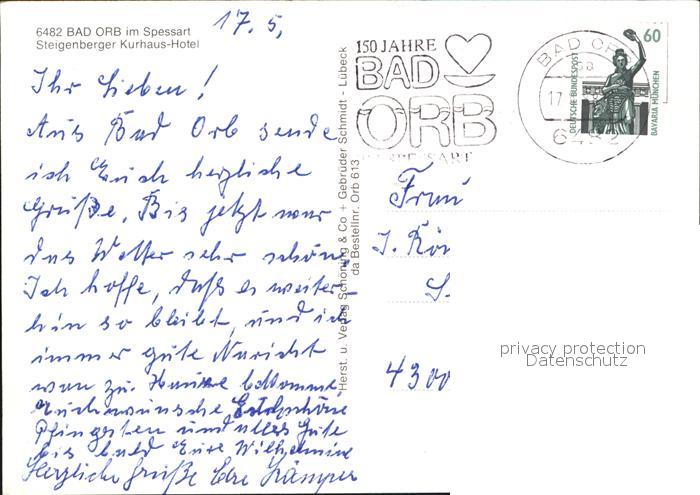 6482 BAD ORB im Spessart
Steigenberger Kurhaus-Hotel
17. 5,
Ihr Lieben!
Aus Bad Orb sende
ich Euch herzliche
Grüße, Bis jetzt war
das Wetter sehr schön,
Ich hoffe, daß es weiter-
hin so bleibt, und ich
immer gute Naricht
von zu Hause bekomme,
Euch wünsche Euch schöne
Pfingsten und alles Gute
bis bald Eure Wilhelmine
Herzliche Grüße Eure
Herst. u. Verlag Schöning & Co + Gebrüder Schmidt - Lübeck
da Bestellnr. Orb 613
150 JAHRE
BAD
ORB
BAD ORB
17
DEUTSCHE BUNDESPOST
60
BAVARIA MÜNCHEN
Frau
J.
S.
4300
privacy protection
Datenschutz